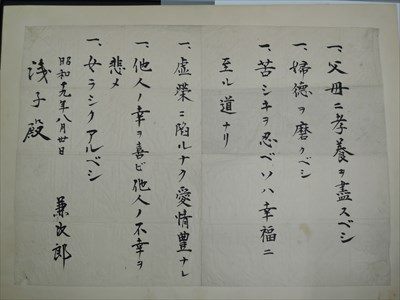 一、父母ニ孝養ヲ盡スベシ
一、婦徳ヲ磨クベシ
一、苦シキヲ忍ベソハ幸福ニ
至ル道ナリ
一、虚榮ニ陥ルナク愛情豊ナレ
一、他人ノ幸ヲ喜ビ他人ノ不幸ヲ
悲メ
一、女ラシクアルベシ
昭和十九年八月廿日
兼次郎
浅子殿